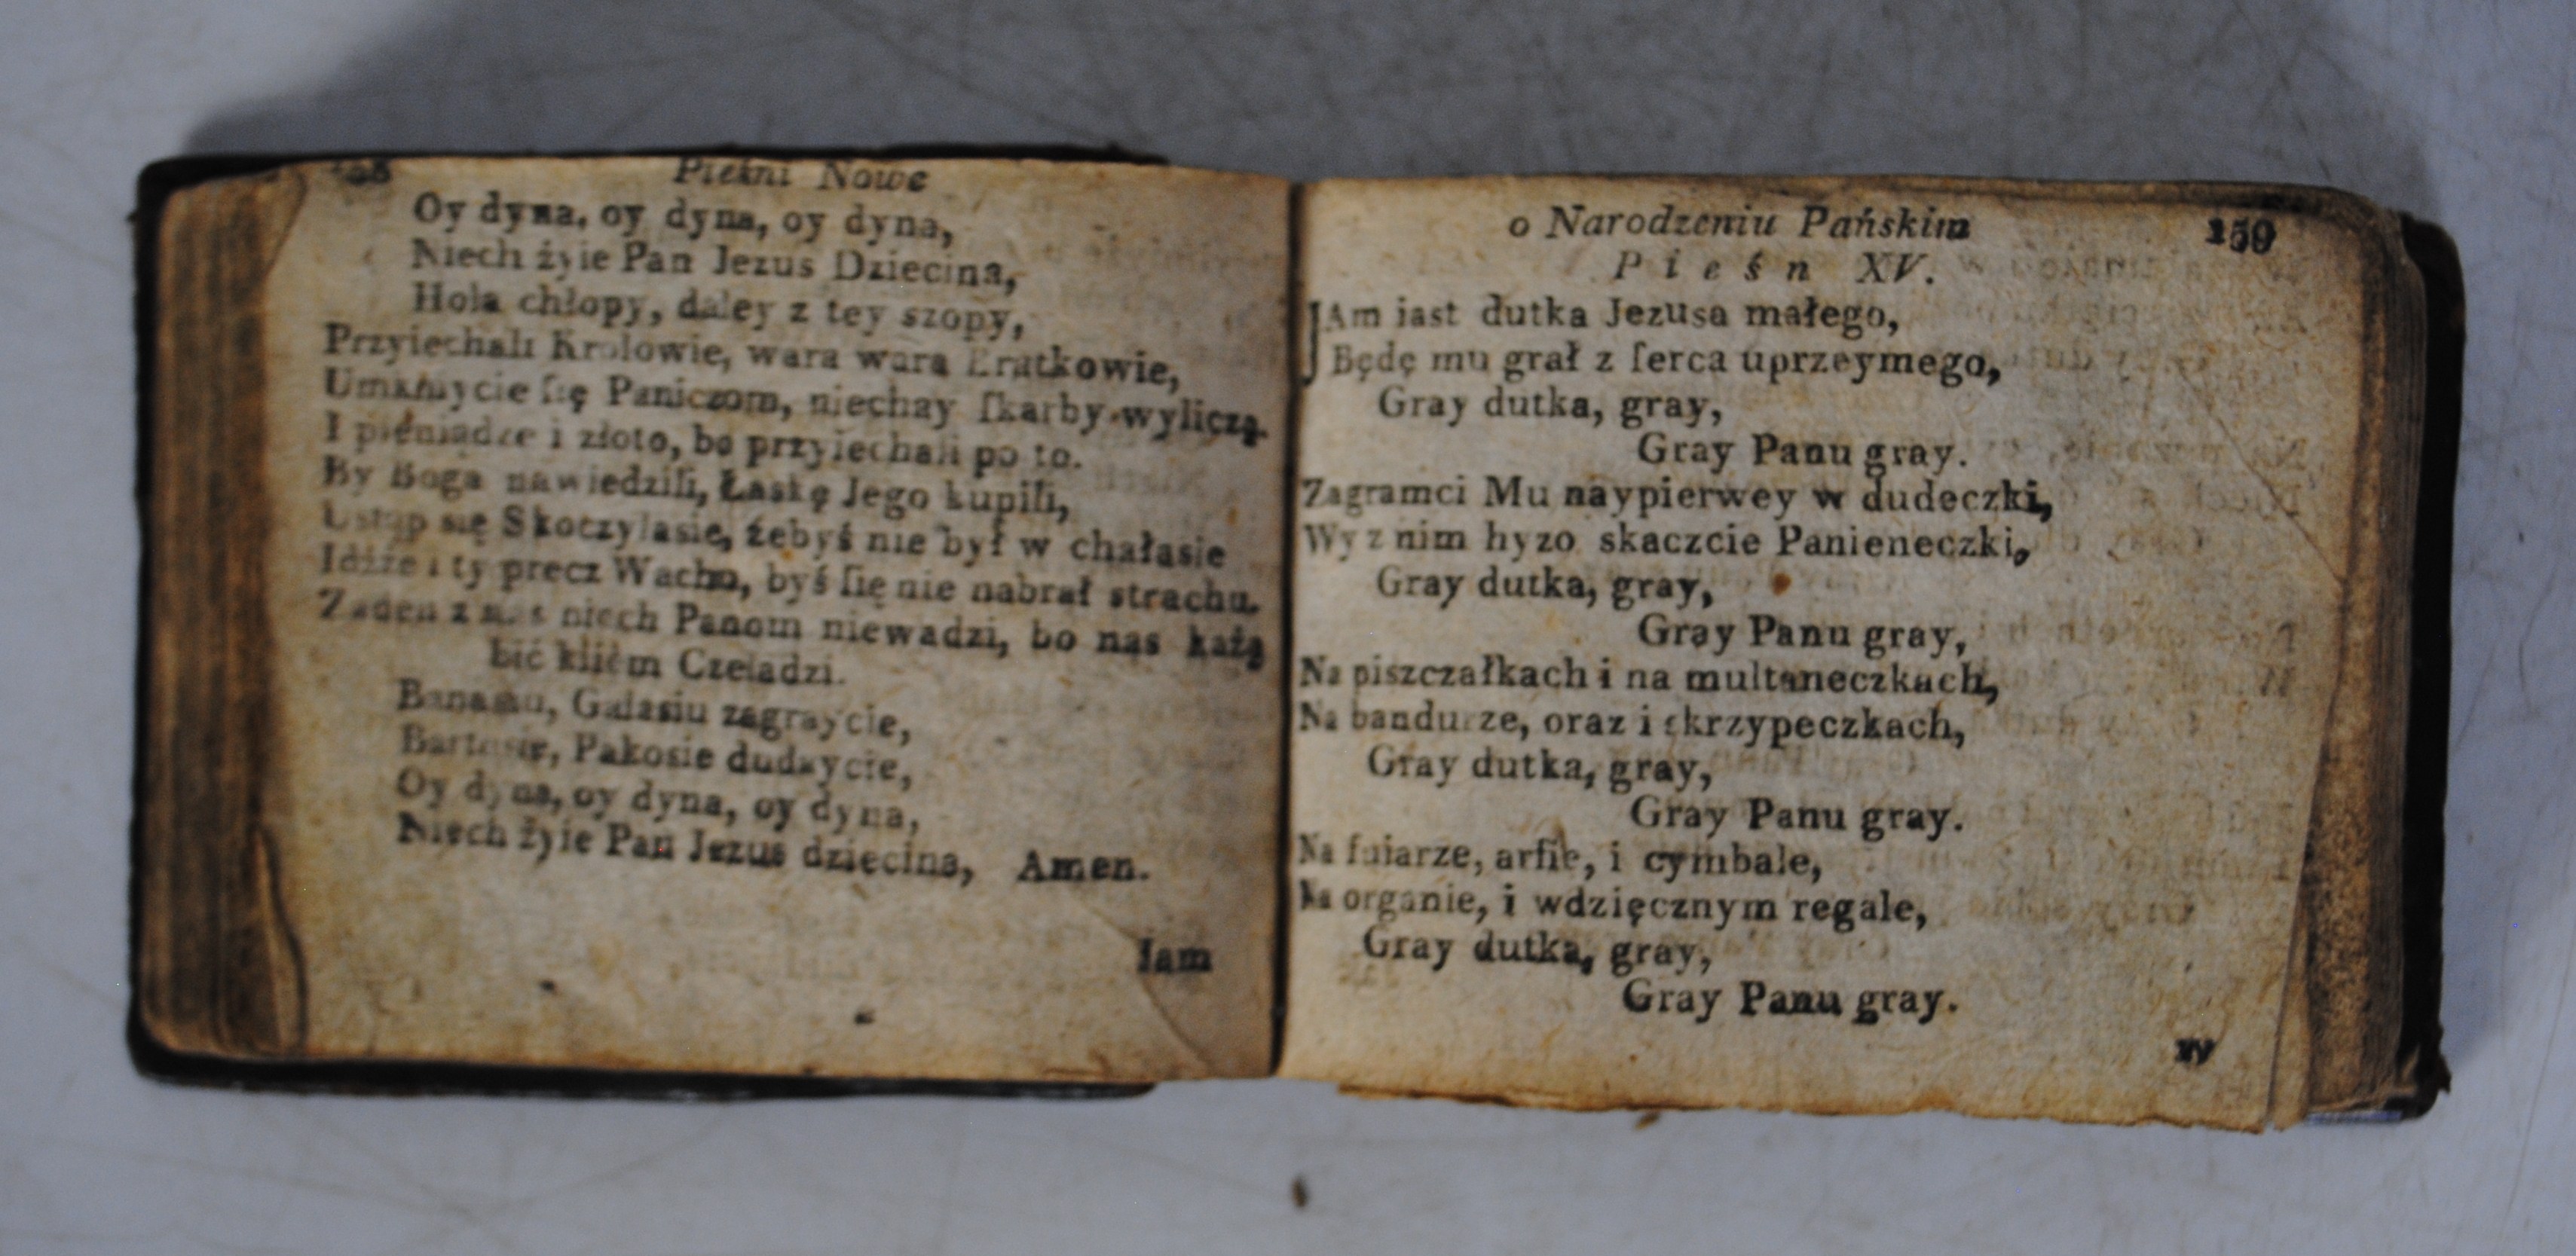 158 Pieśni Nowe
Oy dyna, oy dyna, oy dyna,
Niech żyie Pan Jezus Dziecina,
Hola chłopy, daley z tey szopy,
Przyiechali Krolowie, wara wara Bratkowie,
Umkniycie ſię Paniczom, niechay ſkarby wyliczą.
I pieniądze i złoto, bo przyiechali po to.
By Boga nawiedziſi, Łaskę Jego kupiſi,
Ustąp się Skoczylasie, żebyś nie był w chałasie
Idźże i ty precz Wachu, byś ſię nie nabrał strachu.
Żaden z nas niech Panom niewadzi, bo nas każą
bić kiiem Czeladzi.
Banasiu, Galasiu zagraycie,
Bartosie, Pakosie dudaycie,
Oy dyna, oy dyna, oy dyna,
Niech żyie Pan Jezus dziecina, Amen.
Iam
o Narodzeniu Pańskim 159
Pieśń XV.
JAm iast dutka Jezusa małego,
Będę mu grał z ſerca uprzeymego,
Gray dutka, gray,
Gray Panu gray.
Zagramci Mu naypierwey w dudeczki,
Wy z nim hyzo skaczcie Panieneczki,
Gray dutka, gray,
Gray Panu gray,
Na piszczałkach i na multaneczkach,
Na bandurze, oraz i skrzypeczkach,
Gray dutka, gray,
Gray Panu gray.
Na fuiarze, arfie, i cymbale,
Na organie, i wdzięcznym regale,
Gray dutka, gray,
Gray Panu gray.